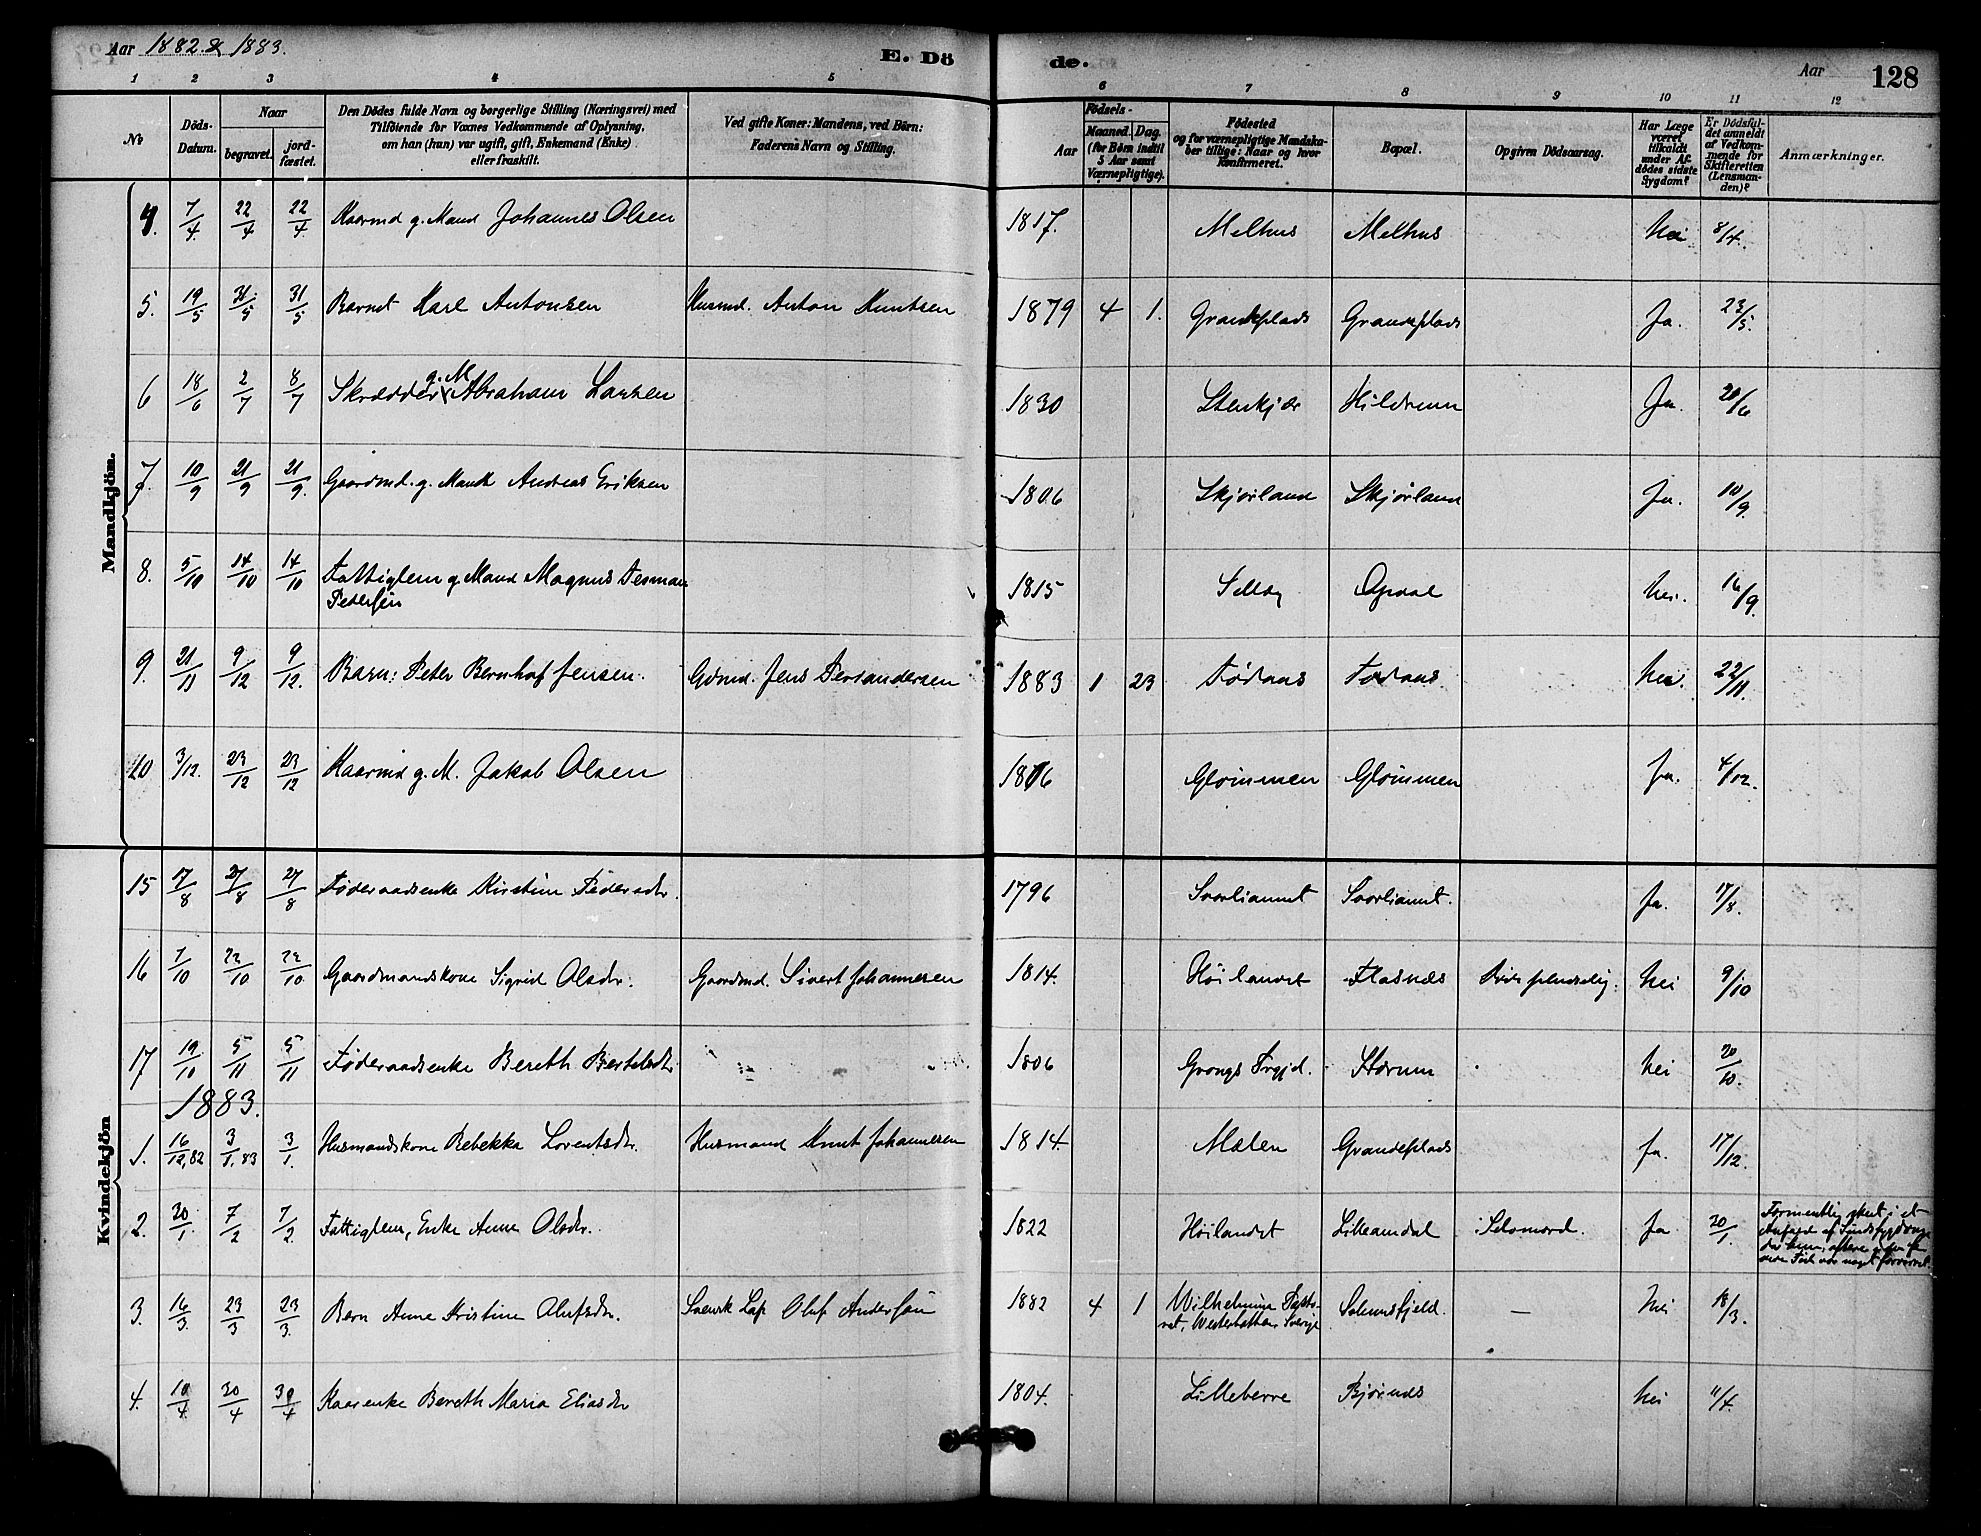 Aar 1882 & 1883.
E. Dö
de.
Aar
128
1 2 3 4 5 6 7 8 9 10 11 12
№
Döds-
Datum.
Naar
begravet.
jord-
fæstet.
Den Dödes fulde Navn og borgerlige Stilling (Næringsvei) med
Tilföiende for Voxnes Vedkommende af Oplysning,
om han (hun) var ugift, gift, Enkemand (Enke)
eller fraskilt.
Ved gifte Koner: Mandens, ved Börn:
Faderens Navn og Stilling.
Födsels-
Aar
Maaned. Dag.
(for Börn indtil
5 Aar samt
Værnepligtige).
Födested
og for værnepligtige Mandska-
ber tillige: Naar og hvor
konfirmeret.
Bopæl.
Opgiven Dödsaarsag.
Har Læge
været
tilkaldt
under Af-
dödes sidste
Sygdom?
Er Dödsfal-
det anmeldt
af Vedkom-
mende for
Skifteretten
(Lensman-
den)?
Anmærkninger.
Mandkjön.
4. 7/4. 22/4 22/4. Kaarmd g. Mand Johannes Olsen 1817. Melhus Melhus Nei 8/4.
5. 19/5 31/5 31/5 Barnet Karl Antonsen Husmd. Anton Knutsen 1879 4 1. Grandeplads Grandeplads Ja. 23/5.
6 18/6 2/7 8/7 Skrædder g. M Abraham Larsen 1830 Stenkjær Hildrem Ja. 20/6
7. 10/9 21/9 21/9. Gaardmd. g. Mand Andreas Eriksen 1806 Skjørland Skjørland Ja. 10/9.
8. 5/10 14/10 14/10 Fattiglem g Mand Magnus Tesman
Pedersen 1815 Selbu Opdal Nei. 16/9.
9. 21/11 9/12 9/12. Barn: Peter Bernhof Jensen. Gdmd. Jens Ferdandersen 1883 1 23 Fødaas Fodaas Nei. 22/11.
10 3/12. 23/12 23/12 Kaarmd g. M. Jakob Olsen 1816 Gløimmen Gløimmen Ja. 4/12.
Kvindekjön
15 17/8 27/8 27/8 Føderaadsenke Kirstine Pedersdtr. 1796 Svorliamet Svorliamet. Ja. 17/8.
16 7/10 22/10 22/10. Gaardmandskone Sigrid Olsdtr. Gaardmd. Sivert Johannesen 1814. Høilandet Flasnes Døde pludselig. Nei 9/10
17 19/10 5/11 5/11 Føderaadsenke Bereth Bertelsdtr. 1806 Grongs Prgjd. Hærum Nei 20/10.
1883.
1. 16/12, 82 3/1. 83 3/1. Husmandskone Rebekka Lorentsdtr. Husmand Knut Johannesen 1814. Mælen Grandeplads Ja. 17/12.
2. 30/1. 7/2 7/2. Fattiglem, Enke Anne Olsdtr. 1822 Høilandet Lilleamdal Selvmord. Ja 30/1. Formentlig skeet i et
Anfald af Sindssygdom
3. 16/3. 23/3 23/3. Barn Anne Kristine Olufsdtr. Svensk Lap Oluf Andersen 1882 4 1 Wilhelmina Pasto-
rat, Westerbotten, Sverige Solumsfjeld. — Nei 18/3.
4. 10/4. 30/4 30/4 Kaarenke Bereth Maria Eliasdtr 1804. Lilleberre Bjørnes Nei 11/4.